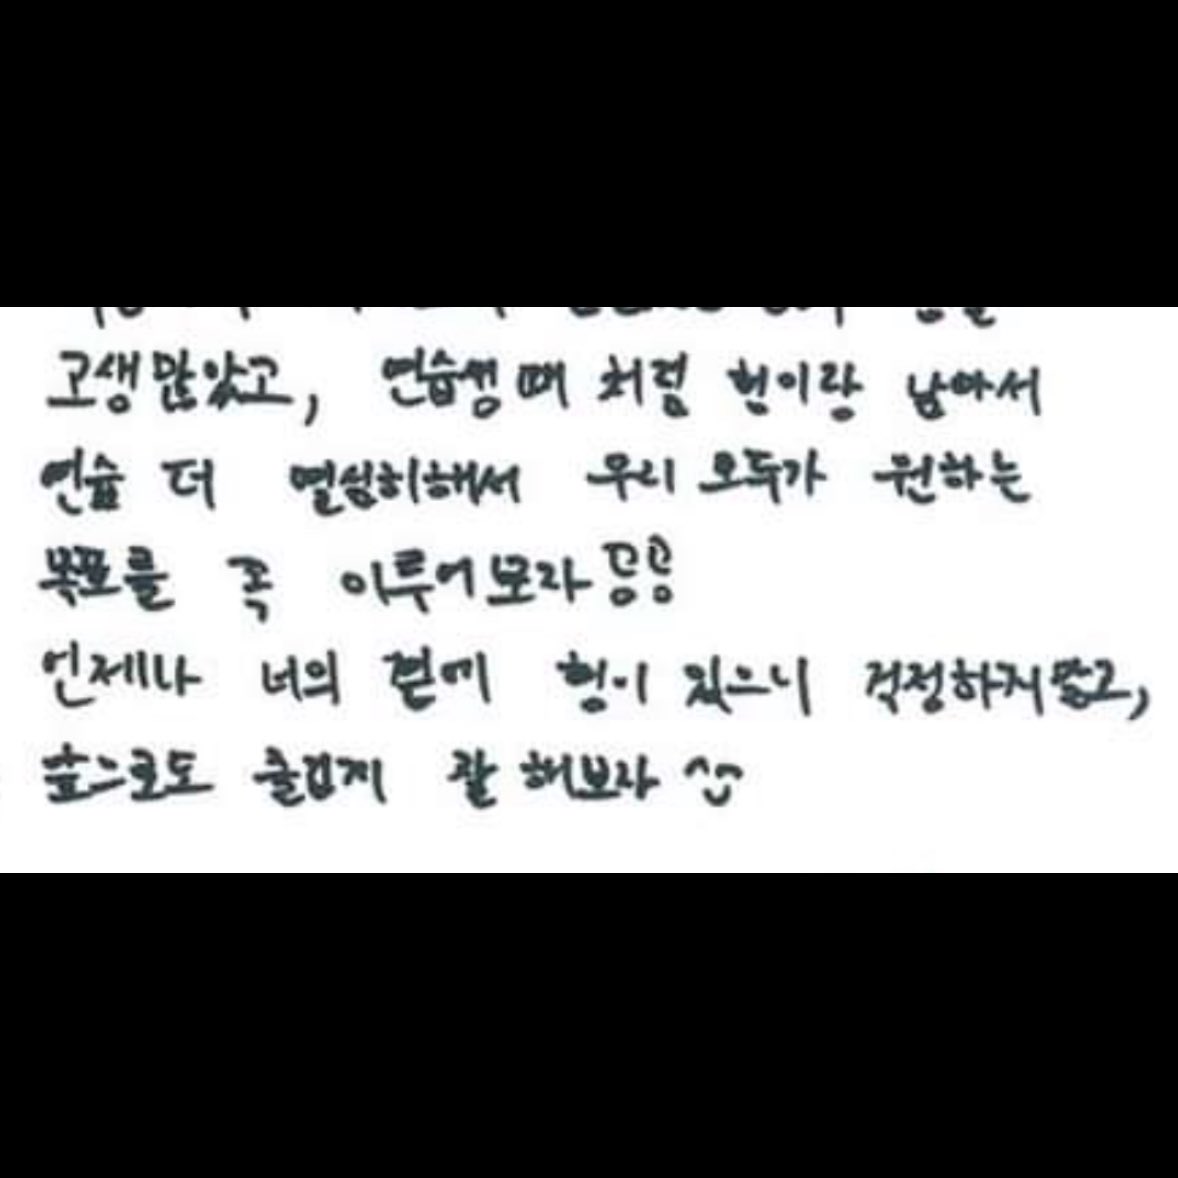 고생많았고, 연습생때 처럼 형이랑 남아서
연습 더 열심히해서 우리 모두가 원하는
목표를 꼭 이루어보자!!
언제나 너의 곁에 형이 있으니 걱정하지말고,
앞으로도 즐겁게 잘 해보자 ^^